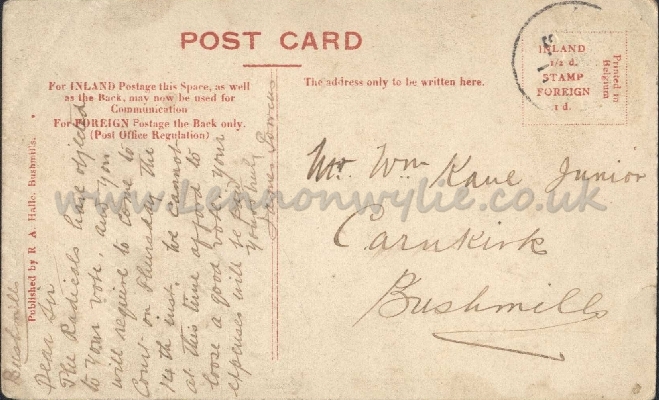 POST CARD
For INLAND Postage this Space, as well
as the Back, may now be used for
Communication
For FOREIGN Postage the Back only.
(Post Office Regulation)
The address only to be written here.
INLAND
1/2 d.
STAMP
FOREIGN
1 d.
Printed in
Belgium
Published by R. A. Halle, Bushmills.
Bushmills
Dear Sir
The Radicals have objected
to your vote, and you
will require to come to
Court on Thursday the
14th inst. we cannot
at this time afford to
loose a good vote, your
expenses will be paid
yours truly
James
Mr. Wm Kane Junior
Carnkirk
Bushmills
www.Lennonwylie.co.uk